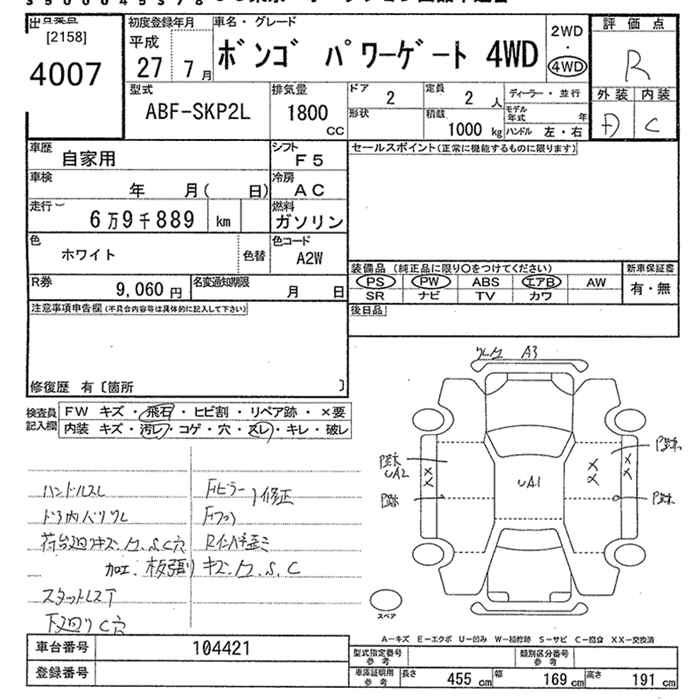 出品業点
[2158]
4007
初度登録年月
平成
27年 7月
車名・グレード
ボンゴ パワーゲート 4WD
2WD
・
4WD
評価点
R
外装 内装
D C
型式
ABF-SKP2L
排気量
1800
CC
ドア
2
定員
2 人
ディーラー・並行
形状
積載
1000 kg
モデル年式 年
ハンドル 左・右
車歴
自家用
シフト
F5
セールスポイント(正常に機能するものに限ります)
車検
年 月( 日)
冷房
AC
走行
6万9千889 km
燃料
ガソリン
色
ホワイト
色替
色コード
A2W
装備品 (純正品に限り○をつけてください)
新車保証書
PS PW ABS エアB AW
SR ナビ TV カワ
有・無
R券
9,060 円
名変通知期限
月 日
後日品
注意事項申告欄(不具合内容等は具体的に記入して下さい)
修復歴 有〔箇所 〕
検査員
記入欄
FW キズ・飛石・ヒビ割・リペア跡・×要
内装 キズ・汚レ・コゲ・穴・スレ・キレ・破レ
ハンドルスレ
ドア内バリワレ
荷台廻りキズ.凹.S.C穴
加工.板張り
スタットレスT
下廻りC穴
Fピラー
修正
Rインパネ歪ミ
キズ.凹.S.C
A3
UA2
UA1
××
××
××
スペア
A-キズ E-エクボ U-凹み W-補修跡 S-サビ C-腐食 XX-交換済
車台番号
104421
登録番号
型式指定番号
参考
類別区分番号
参考
車庫証明用
参考
長さ 455 cm
幅 169 cm
高さ 191 cm